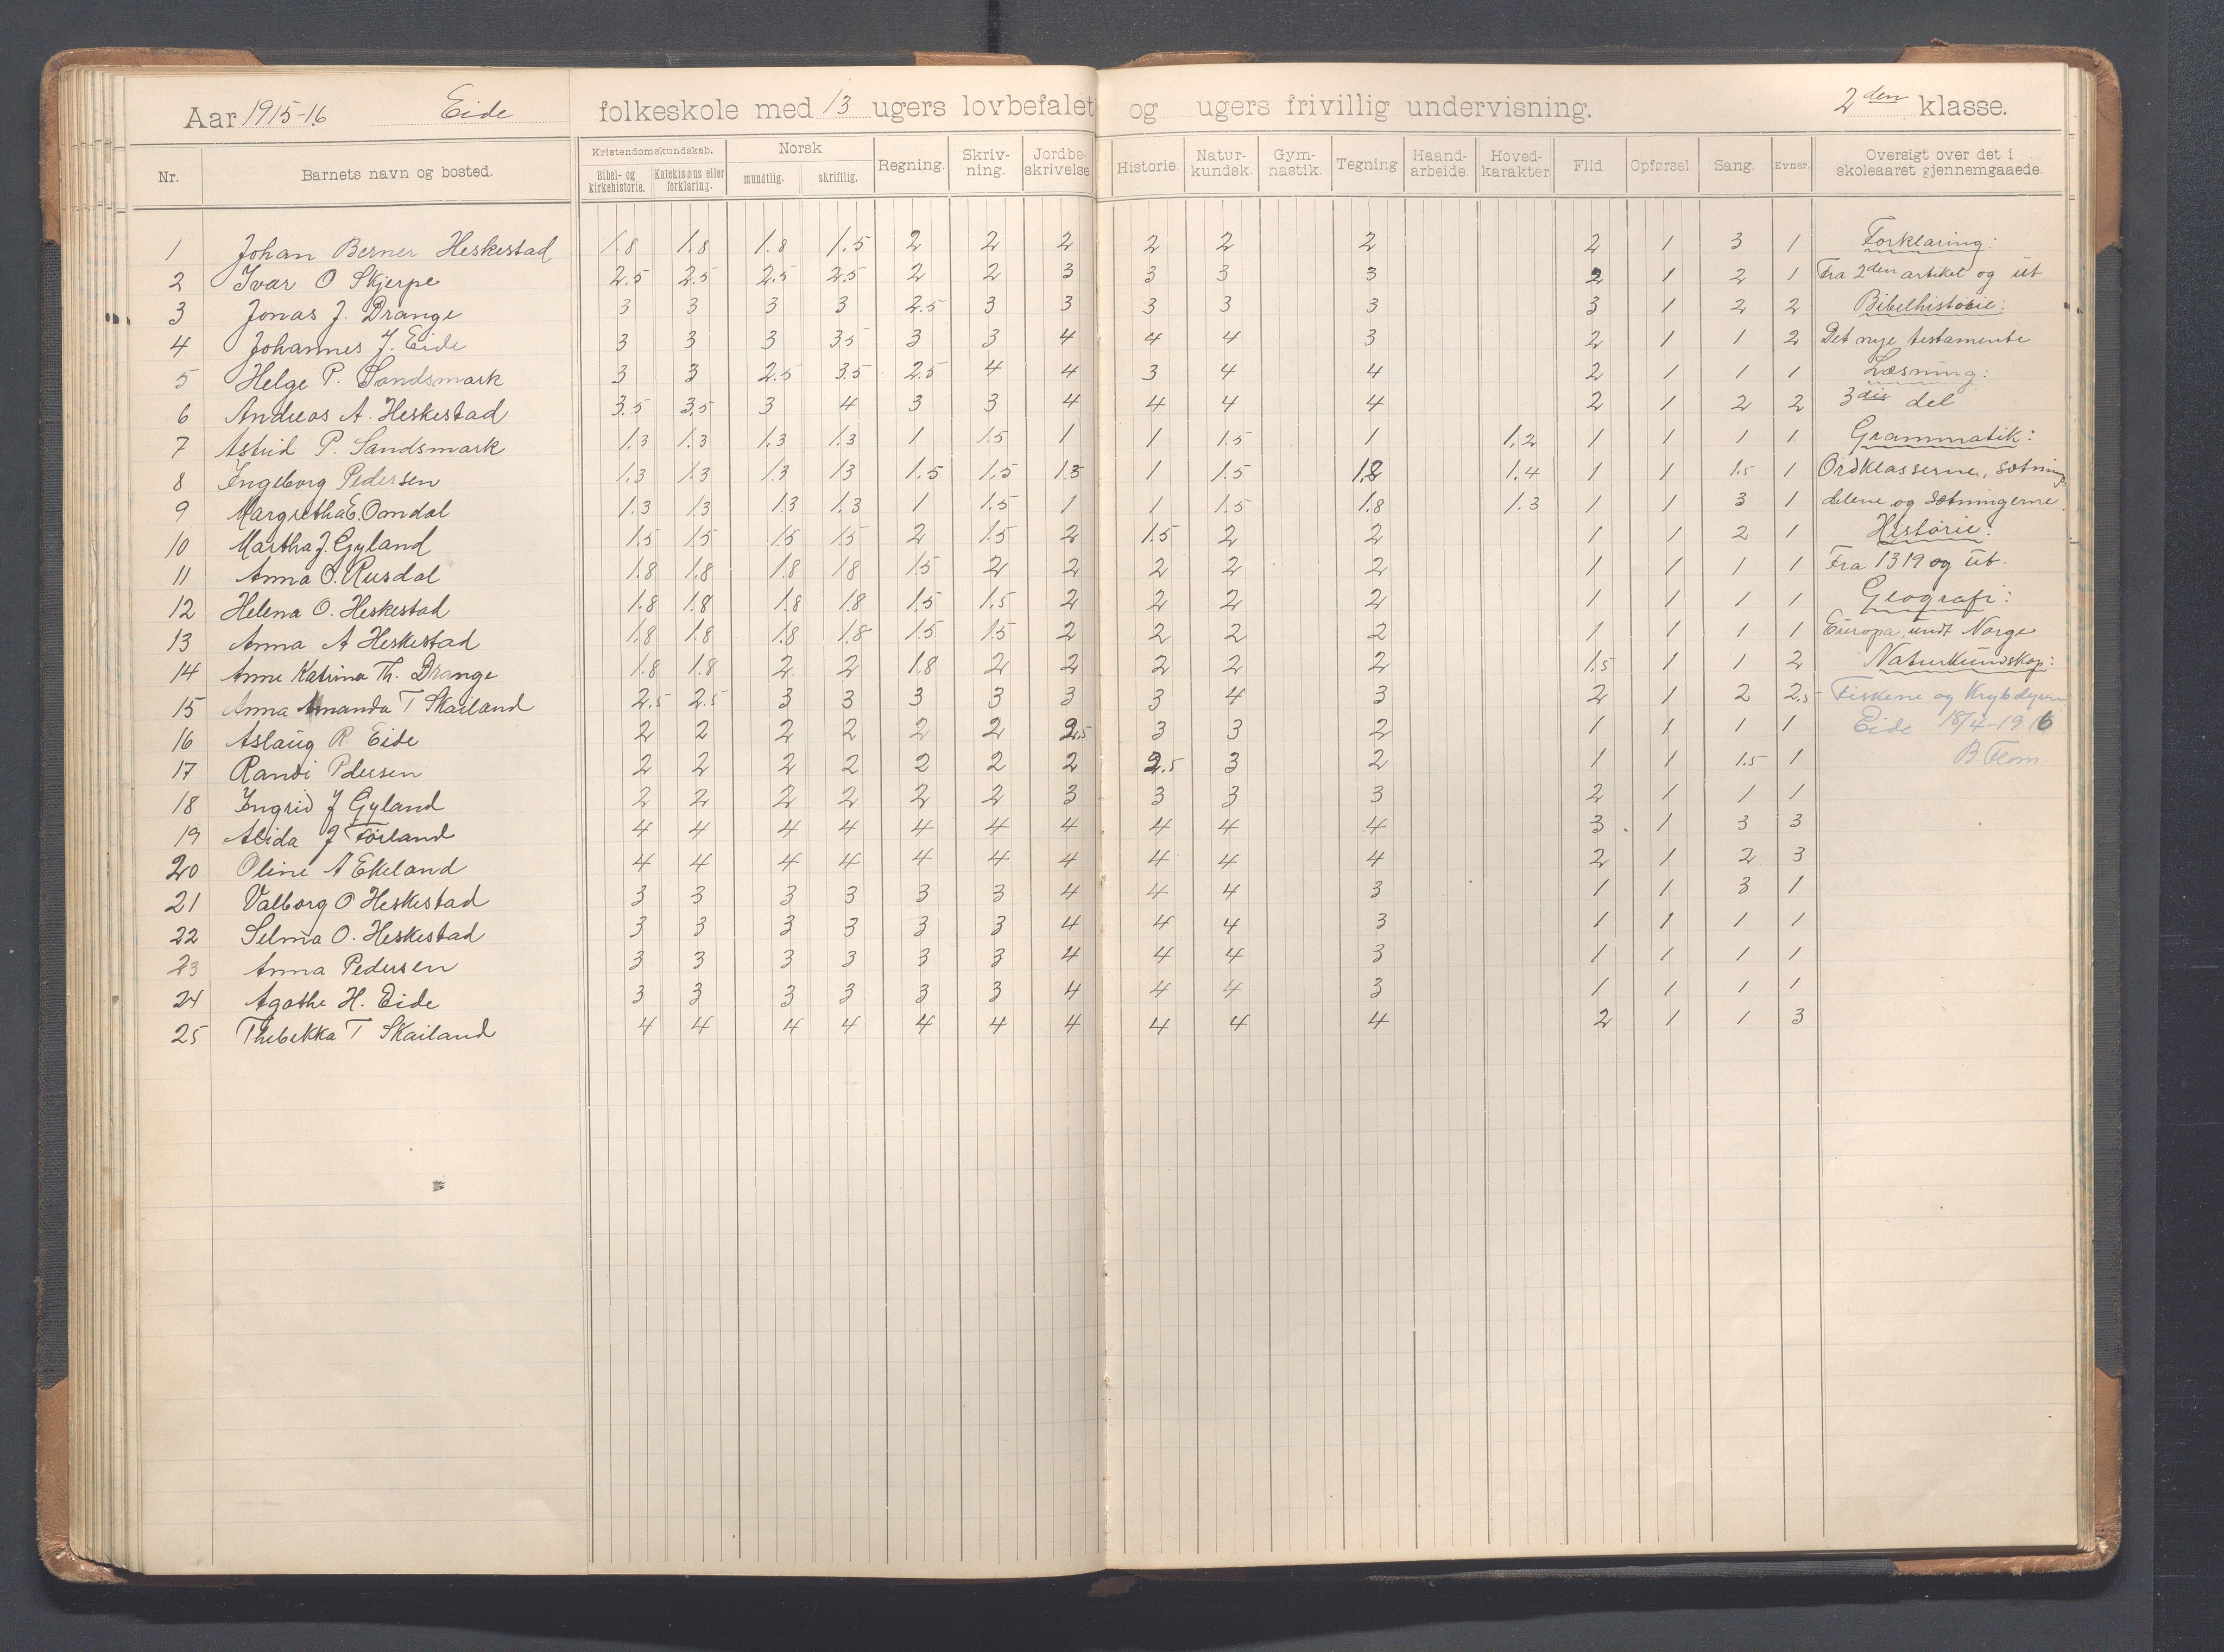 Aar 1915-16 Eide folkeskole med 13 ugers lovbefalet og ugers frivillig undervisning. 2den klasse.
Nr. Barnets navn og bosted. Kristendomskundskab. Bibel- og kirkehistorie. Katekismus eller forklaring. Norsk mundtlig. skriftlig. Regning. Skriv-ning. Jordbe-skrivelse Historie. Natur-kundsk. Gym-nastik. Tegning Haand-arbeide. Hoved-karakter Flid Opførsel Sang. Evner. Oversigt over det i skoleaaret gjennemgaaede.
1 Johan Berner Heskestad 1.8 1.8 1.8 1.5 2 2 2 2 2 2 2 1 3 1 Forklaring:
2 Ivar O Skjerpe 2.5 2.5 2.5 2.5 2 2 3 3 3 3 2 1 2 1 Fra 2den artikel og ut
3 Jonas J. Drange 3 3 3 3 2.5 3 3 3 3 3 3 1 2 2 Bibelhistorie:
4 Johannes J. Eide 3 3 3 3.5 3 3 4 4 4 3 2 1 1 2 Det nye testamente
5 Helge P. Sandsmark 3 3 2.5 3.5 2.5 4 4 3 4 4 2 1 1 1 Læsning:
6 Andreas A. Heskestad 3.5 3.5 3 4 3 3 4 4 4 4 2 1 2 2 3die del
7 Astrid P. Sandsmark 1.3 1.3 1.3 1.3 1 1.5 1 1 1.5 1 1.2 1 1 1 1 Grammatik:
8 Ingeborg Pedersen 1.3 1.3 1.3 1.3 1.5 1.5 1.3 1 1.5 1.8 1.4 1 1 1.5 1 Ordklasserne, sætnings
9 Margretha E. Omdal 1.3 1.3 1.3 1.3 1 1.5 1 1 1.5 1.8 1.3 1 1 3 1 delene og sætningerne.
10 Martha J. Gyland 1.5 1.5 1.5 1.5 2 1.5 2 1.5 2 2 1 1 2 1 Historie:
11 Anna O. Rusdal 1.8 1.8 1.8 1.8 1.5 2 2 2 2 2 1 1 1 1 Fra 1319 og ut.
12 Helena O. Heskestad 1.8 1.8 1.8 1.8 1.5 1.5 2 2 2 2 1 1 1 1 Geografi:
13 Anna A Heskestad 1.8 1.8 1.8 1.8 1.5 1.5 2 2 2 2 1 1 1 1 Europa undt Norge
14 Anne Katrina Th. Drange 1.8 1.8 2 2 1.8 2 2 2 2 2 1.5 1 1 2 Naturkundskap:
15 Anna Amanda T Skailand 2.5 2.5 3 3 3 3 3 3 4 3 2 1 2 2.5 Fiskene og Krybdyrene
16 Aslaug R. Eide 2 2 2 2 2 2 2.5 3 3 2 1 1 1 1 Eide 18/4-1916
17 Randi Pdersen 2 2 2 2 2 2 2 2.5 3 2 1 1 1.5 1 B. Flom.
18 Ingrid J Gyland 2 2 2 2 2 2 3 3 3 3 2 1 1 1
19 Alida J Førland 4 4 4 4 4 4 4 4 4 4 3 1 3 3
20 Oline A Ekeland 4 4 4 4 4 4 4 4 4 4 2 1 2 3
21 Valborg O Heskestad 3 3 3 3 3 3 4 4 4 3 1 1 3 1
22 Selma O. Heskestad 3 3 3 3 3 3 4 4 4 3 1 1 1 1
23 Anna Pedersen 3 3 3 3 3 3 4 4 4 3 1 1 1 1
24 Agathe H. Eide 3 3 3 3 3 3 4 4 4 3 1 1 1 1
25 Thebekka T Skailand 4 4 4 4 4 4 4 4 4 4 2 1 1 3